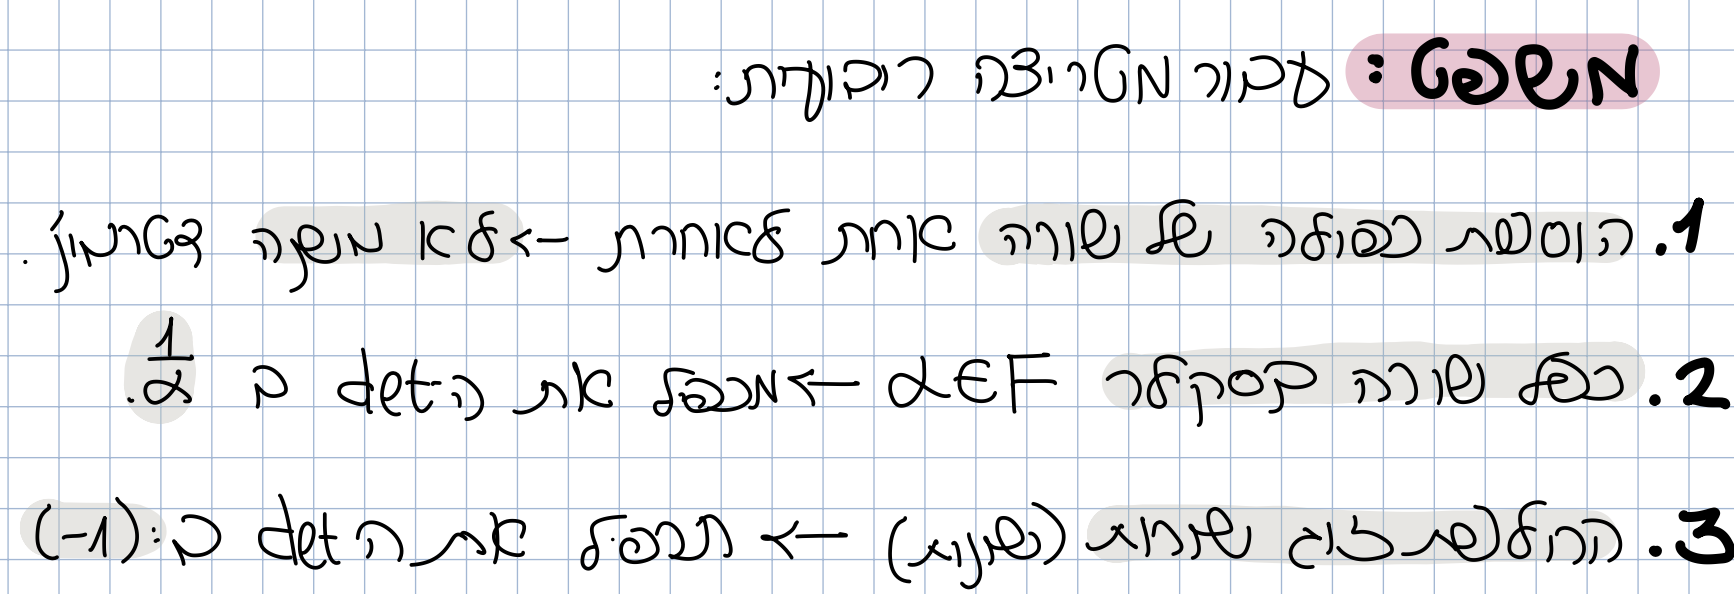 משפט: עבור מטריצה ריבועית:
1. הוספת כפולה של שורה אחת לאחרת ← לא משנה דטרמ׳.
2. כפל שורה בסקלר α∈F ← מכפל את הdet ב 1/α.
3. החלפת זוג שורות (שונות) ← תכפל את הdet ב: (-1)